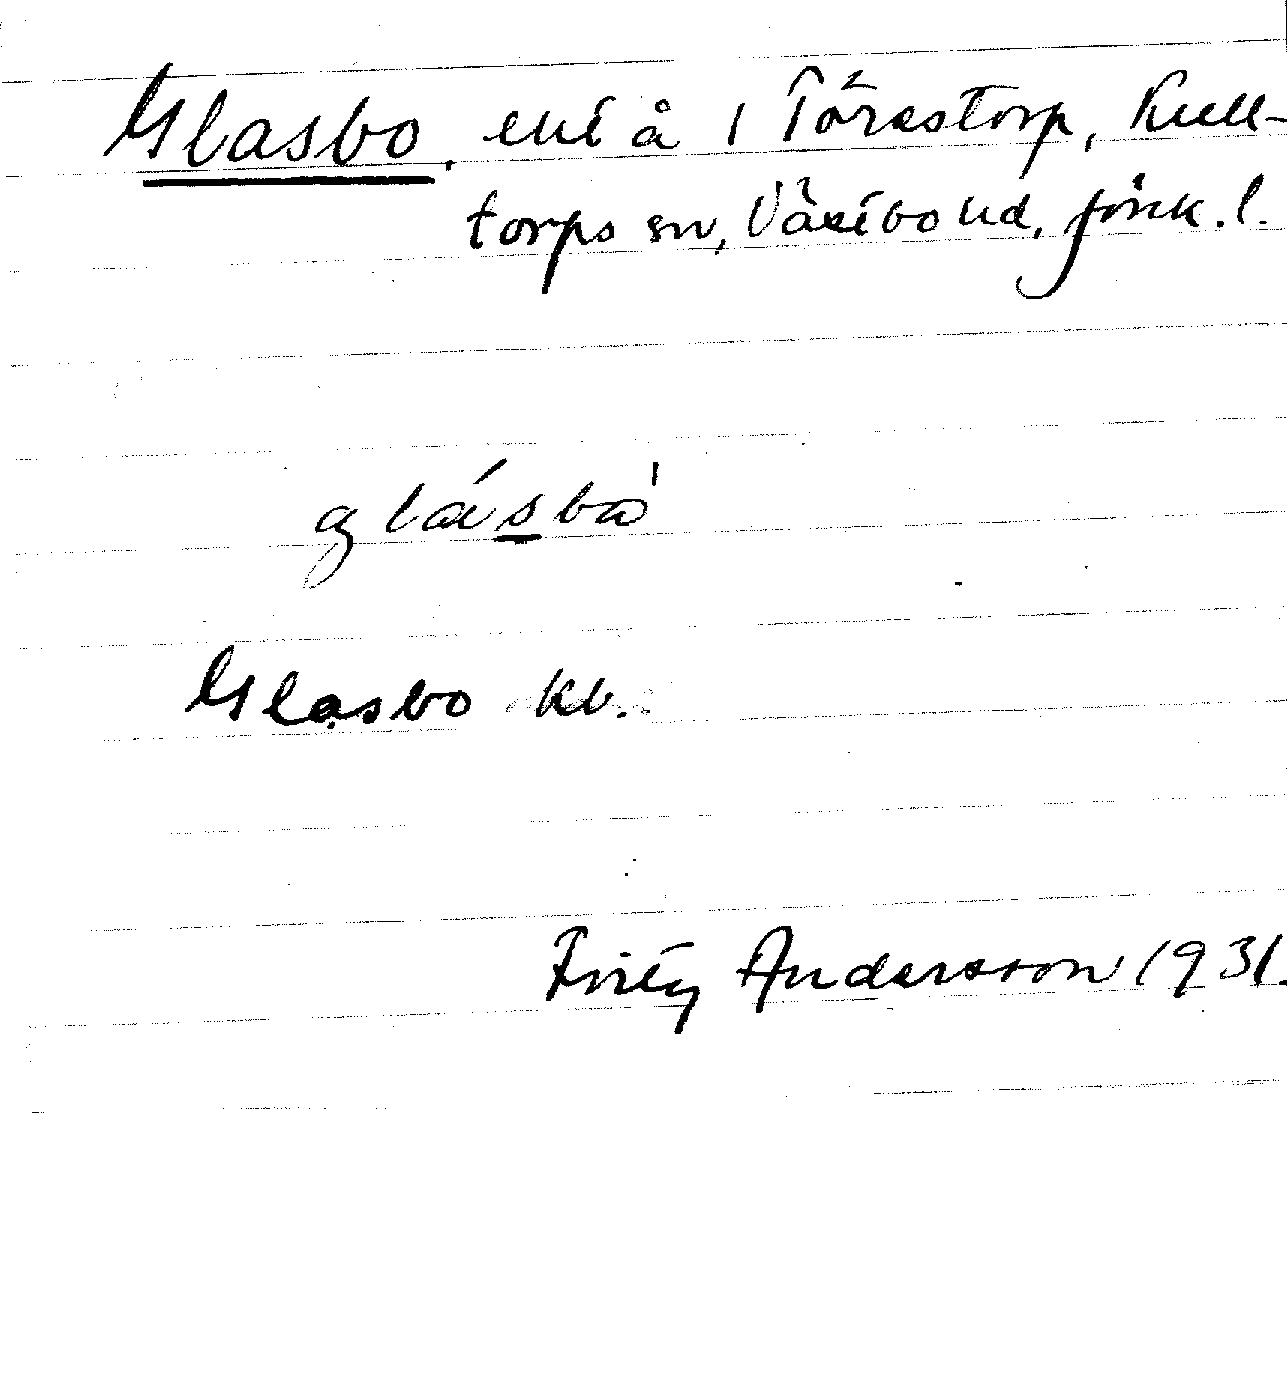 Glasbo, ent å 1 Törestorp, Kull-
torps sn, Västbo hd, Jönk. l.
glásbo'
Glasbo kb.
Fritz Andersson 1931.